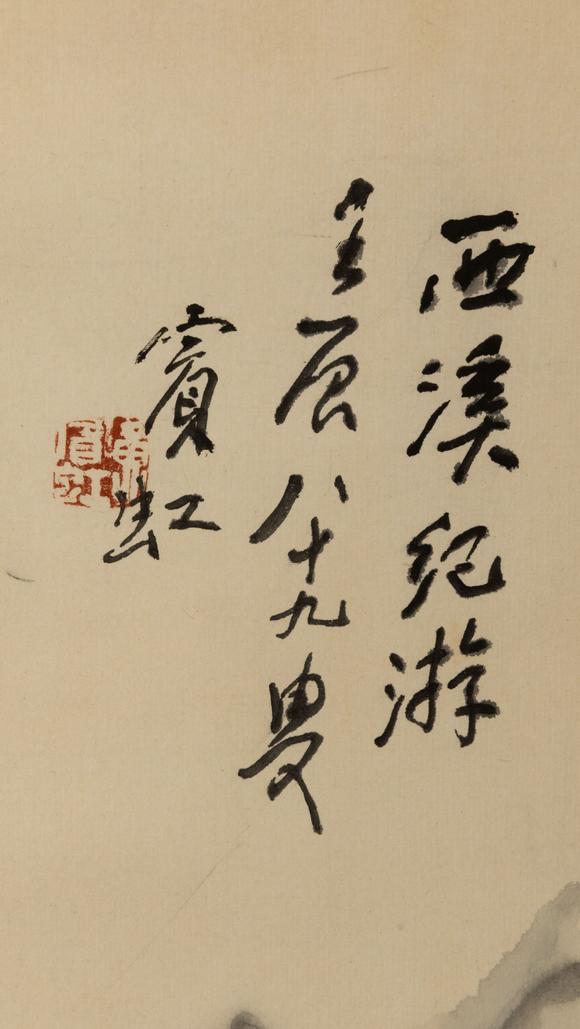 西溪纪游
壬辰八十九叟
賓虹
黃賓虹